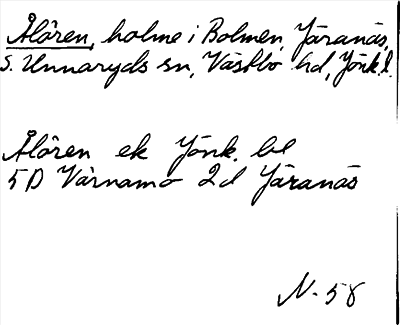 Ålören, holme i Bolmen, Järanäs,
S. Unnaryds sn, Västbo hd, Jönk. l.
Ålören ek Jönk. bl
5D Värnamo 2d Järanäs
N. 58